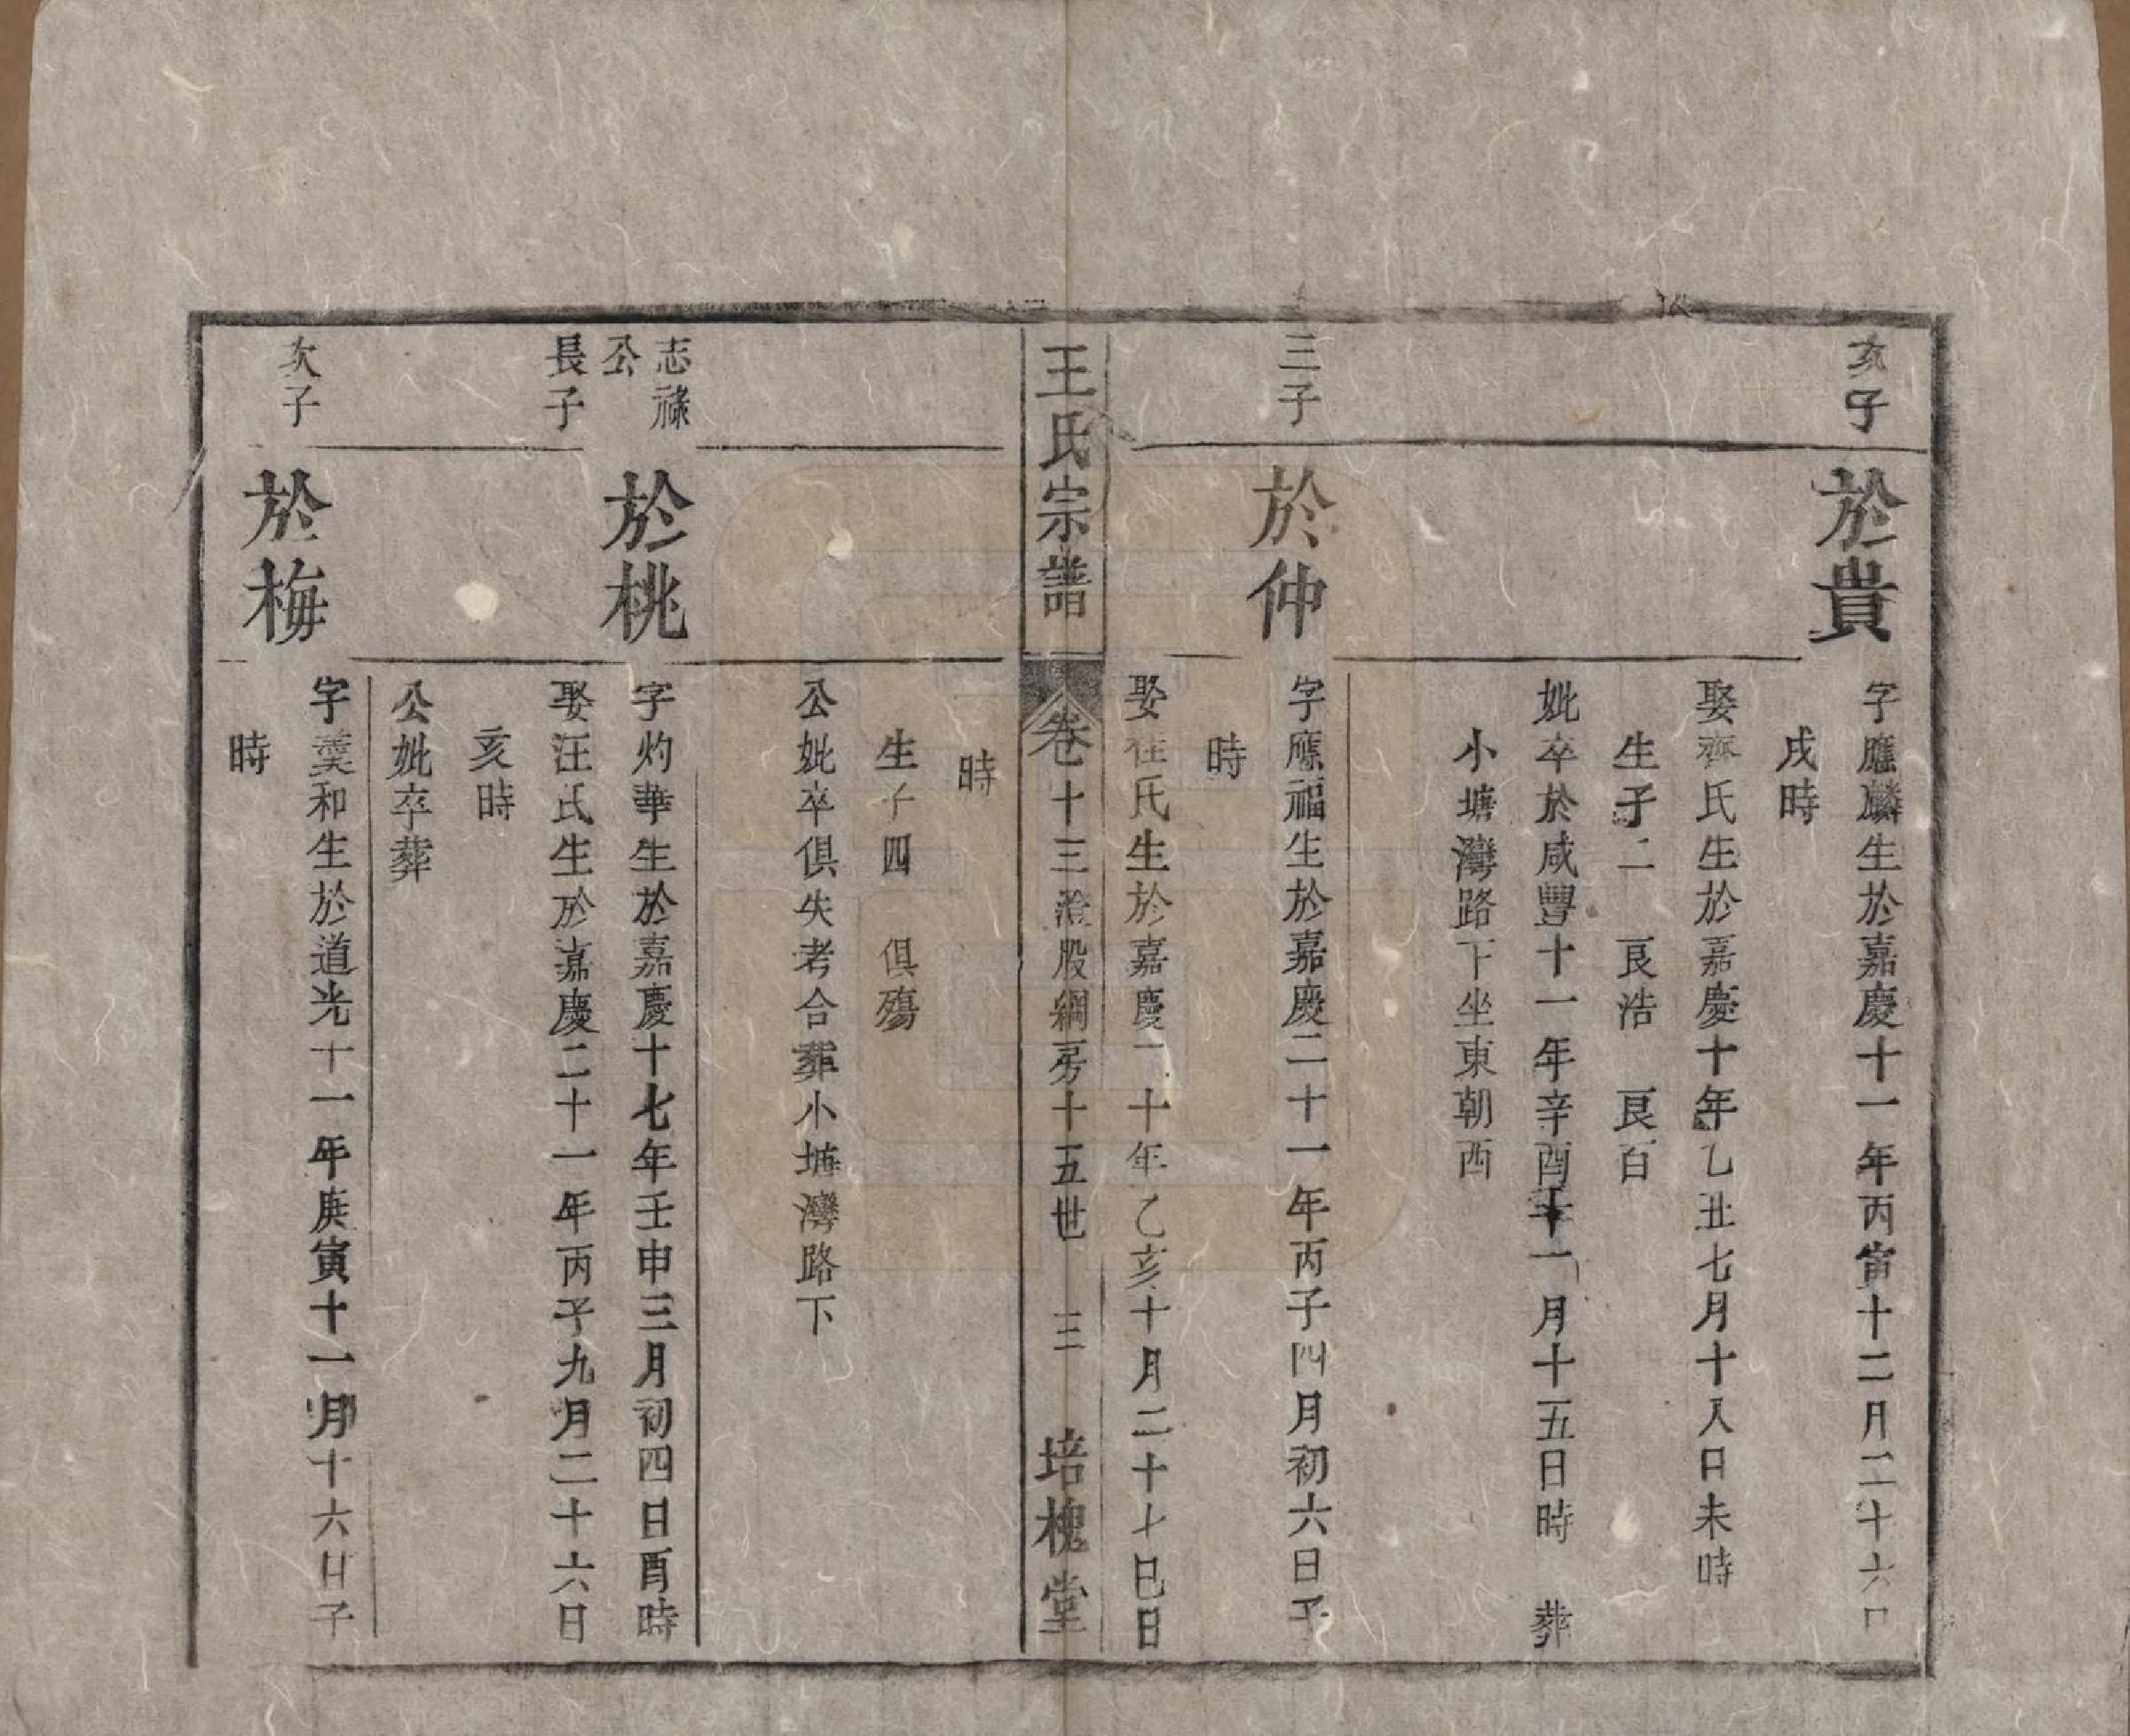 次子
於貴
字應麟生於嘉慶十一年丙寅十二月二十六日
戌時
娶齊氏生於嘉慶十年乙丑七月十八日未時
生子二　良浩　良百
妣卒於咸豐十一年辛酉十一月十五日時　葬
小塘灣路下坐東朝西
三子
於仲
字應福生於嘉慶二十一年丙子四月初六日子
時
娶汪氏生於嘉慶二十年乙亥十月二十七日巳
王氏宗譜
卷十三澄股綱房十五世　三　培槐堂
時
生子四　俱殤
公妣卒俱失考合葬小塘灣路下
志祿
公
長子
於桃
字灼華生於嘉慶十七年壬申三月初四日酉時
娶汪氏生於嘉慶二十一年丙子九月二十六日
亥時
公妣卒葬
次子
於梅
字羹和生於道光十一年庚寅十一月十六日子
時